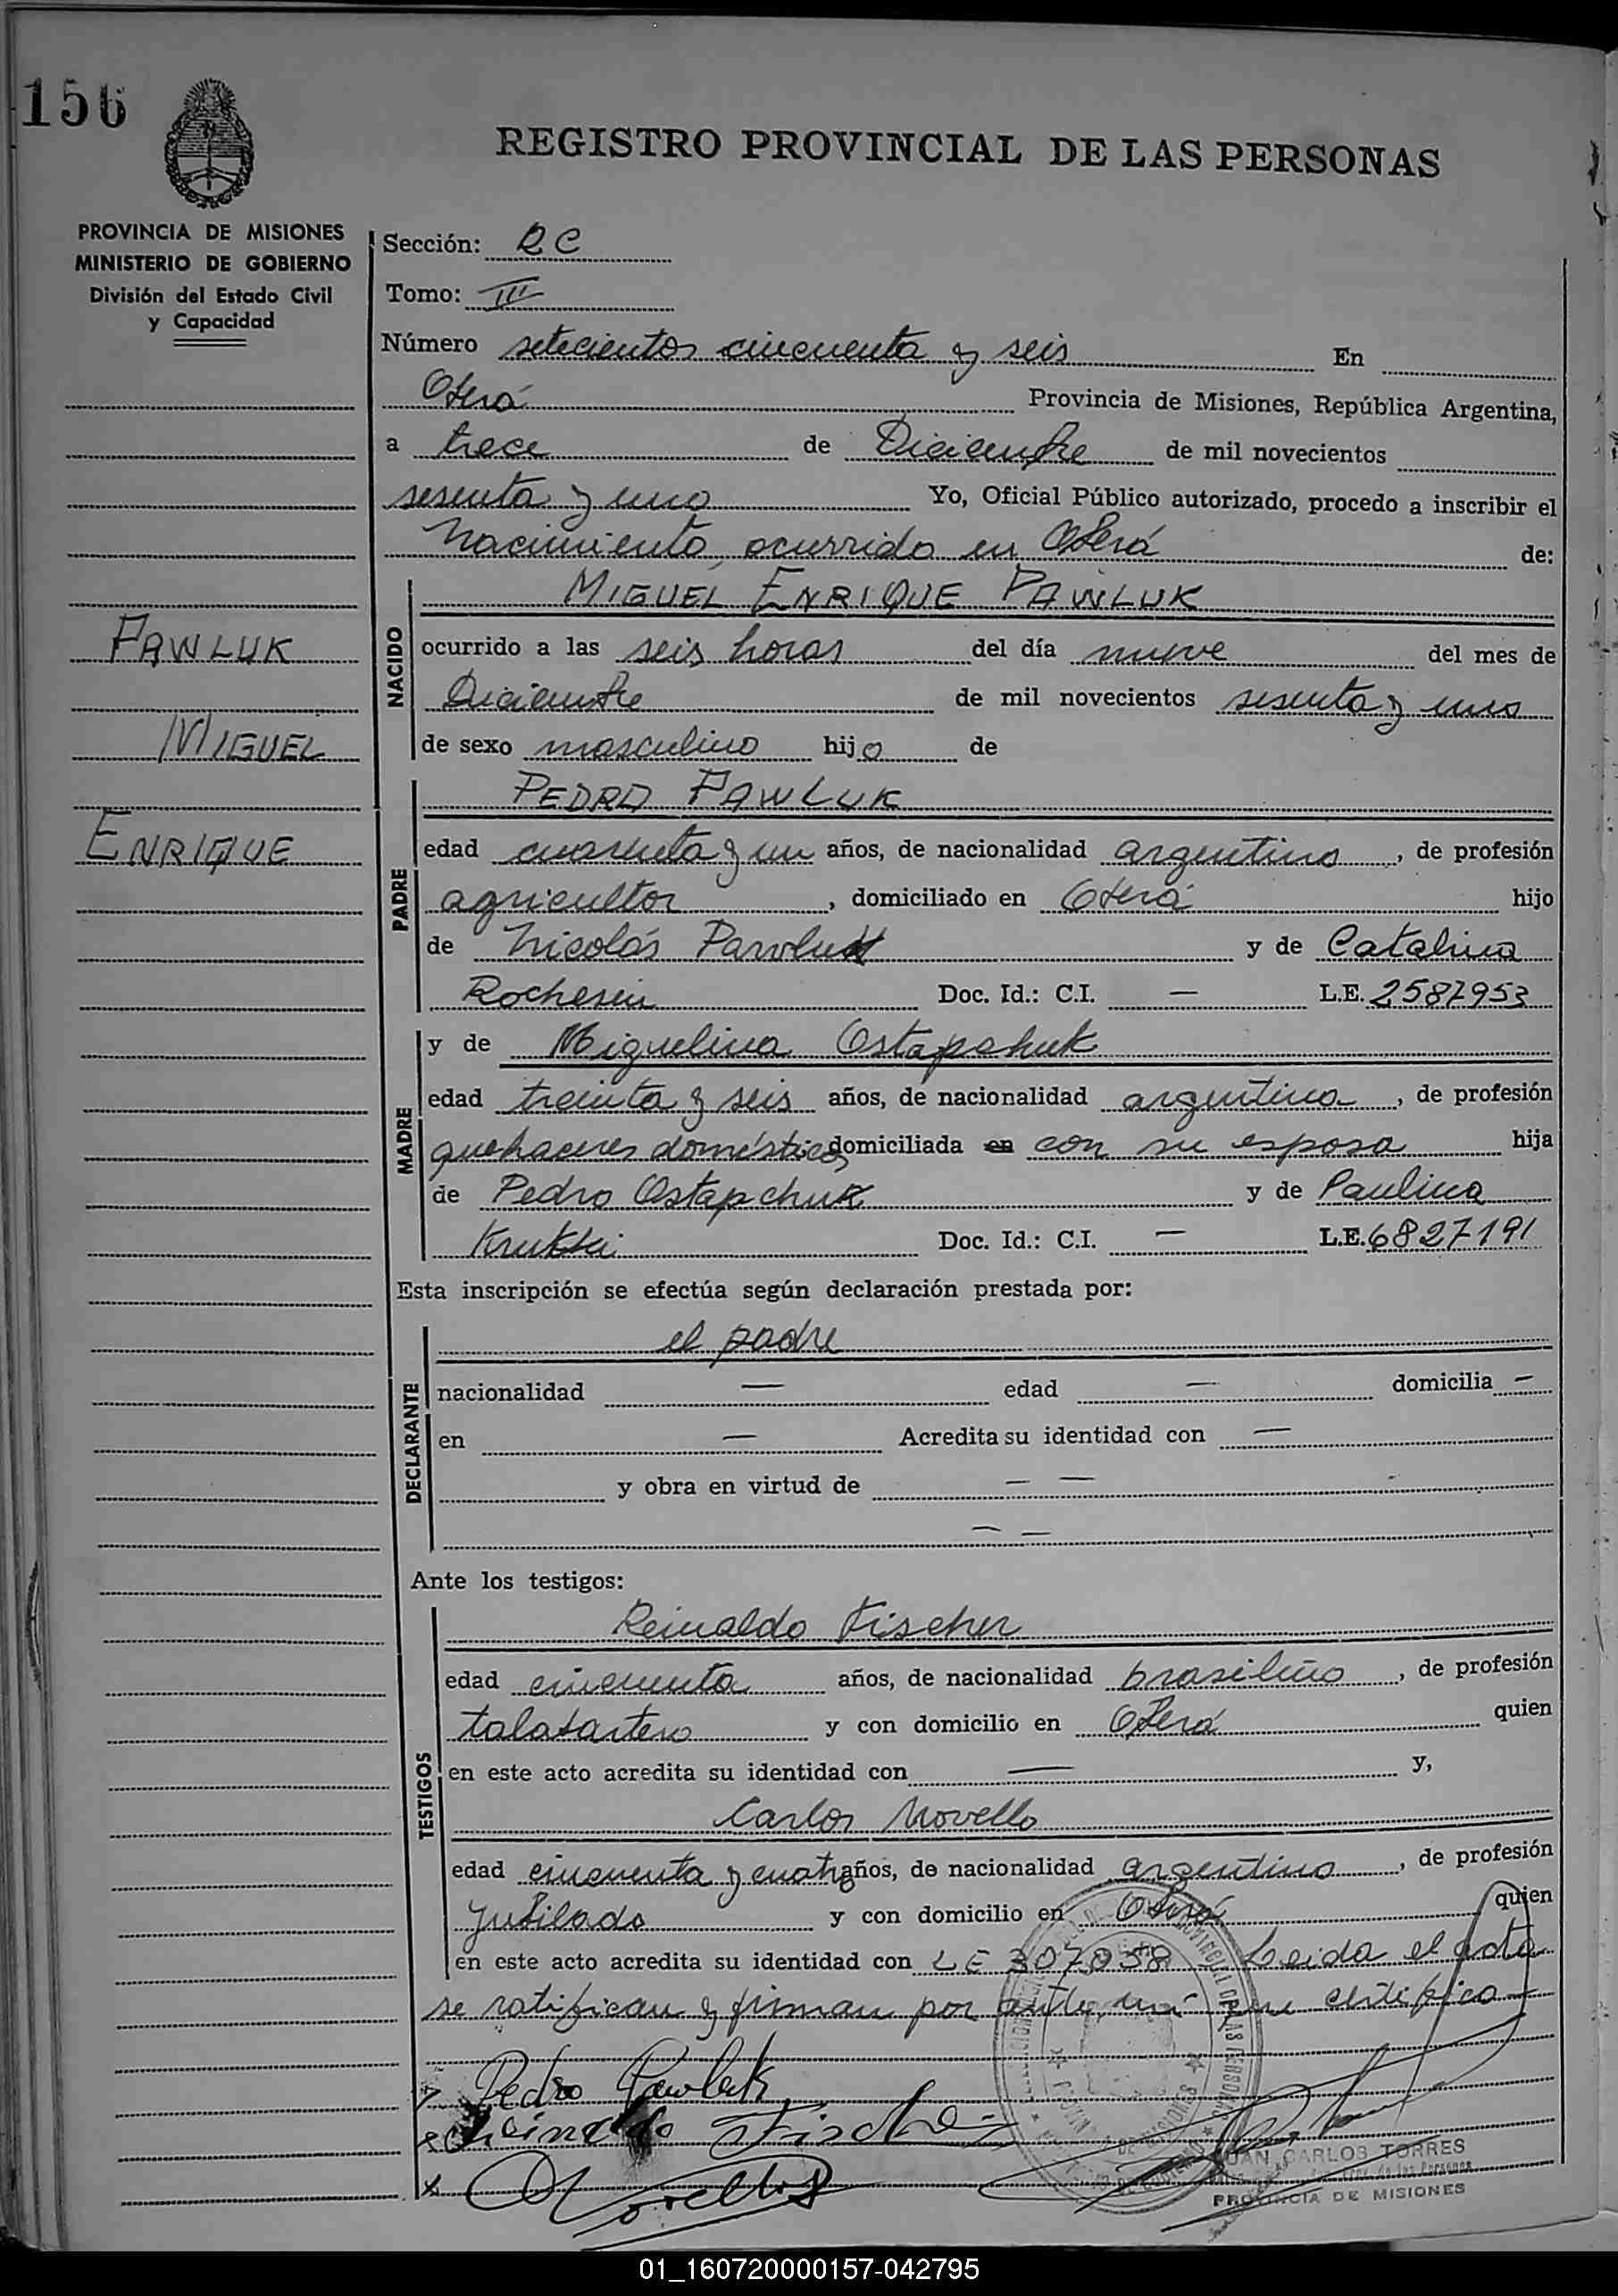 156
REGISTRO PROVINCIAL DE LAS PERSONAS
PROVINCIA DE MISIONES
MINISTERIO DE GOBIERNO
División del Estado Civil
y Capacidad
Sección: RC
Tomo: III
Número setecientos cincuenta y seis En
Oberá Provincia de Misiones, República Argentina,
a trece de Diciembre de mil novecientos
sesenta y uno Yo, Oficial Público autorizado, procedo a inscribir el
nacimiento ocurrido en Oberá de:
PAWLUK
MIGUEL
ENRIQUE
NACIDO
MIGUEL ENRIQUE PAWLUK
ocurrido a las seis horas del día nueve del mes de
Diciembre de mil novecientos sesenta y uno
de sexo masculino hijo de
PADRE
PEDRO PAWLUK
edad cuarenta y un años, de nacionalidad argentino, de profesión
agricultor, domiciliado en Oberá hijo
de Nicolás Pawluk y de Catalina
Rochesin Doc. Id.: C.I. — L.E. 2587953
MADRE
y de Miguelina Ostapchuk
edad treinta y seis años, de nacionalidad argentina, de profesión
quehaceres domésticos domiciliada en con su esposo hija
de Pedro Ostapchuk y de Paulina
Doc. Id.: C.I. — L.E. 6827191
Esta inscripción se efectúa según declaración prestada por:
DECLARANTE
el padre
nacionalidad — edad — domicilia —
en — Acredita su identidad con —
y obra en virtud de — —
— —
Ante los testigos:
TESTIGOS
Reinaldo Fischer
edad cincuenta años, de nacionalidad brasileño, de profesión
talabartero y con domicilio en Oberá quien
en este acto acredita su identidad con — y,
Carlos Novello
edad cincuenta y cuatro años, de nacionalidad argentino, de profesión
Jubilado y con domicilio en Oberá quien
en este acto acredita su identidad con LE 307058 Leida el acta
se ratifican y firman por ante mí que certifico
Pedro Pawluk
Reinaldo Fischer
Novello
JUAN CARLOS TORRES
PROVINCIA DE MISIONES
01_160720000157-042795